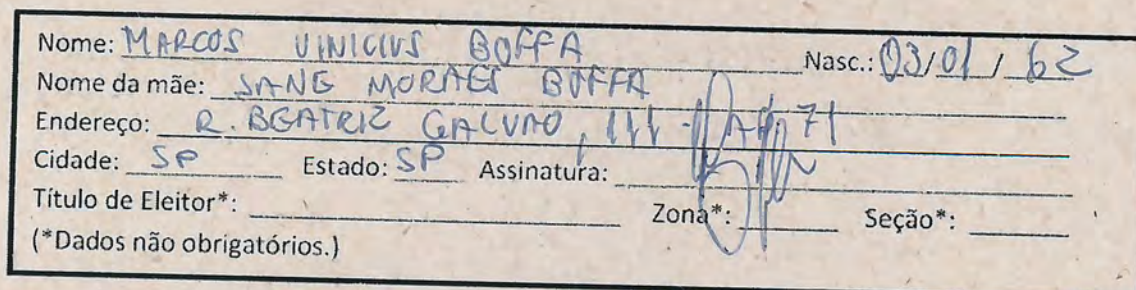 Nome: MARCOS VINICIUS BOFFA Nasc.: 03/01/62
Nome da mãe: MORAES BOFFA
Endereço: R. BEATRIZ GALVAO, 111 - 71
Cidade: SP Estado: SP Assinatura:
Título de Eleitor*: Zona*: Seção*:
(*Dados não obrigatórios.)